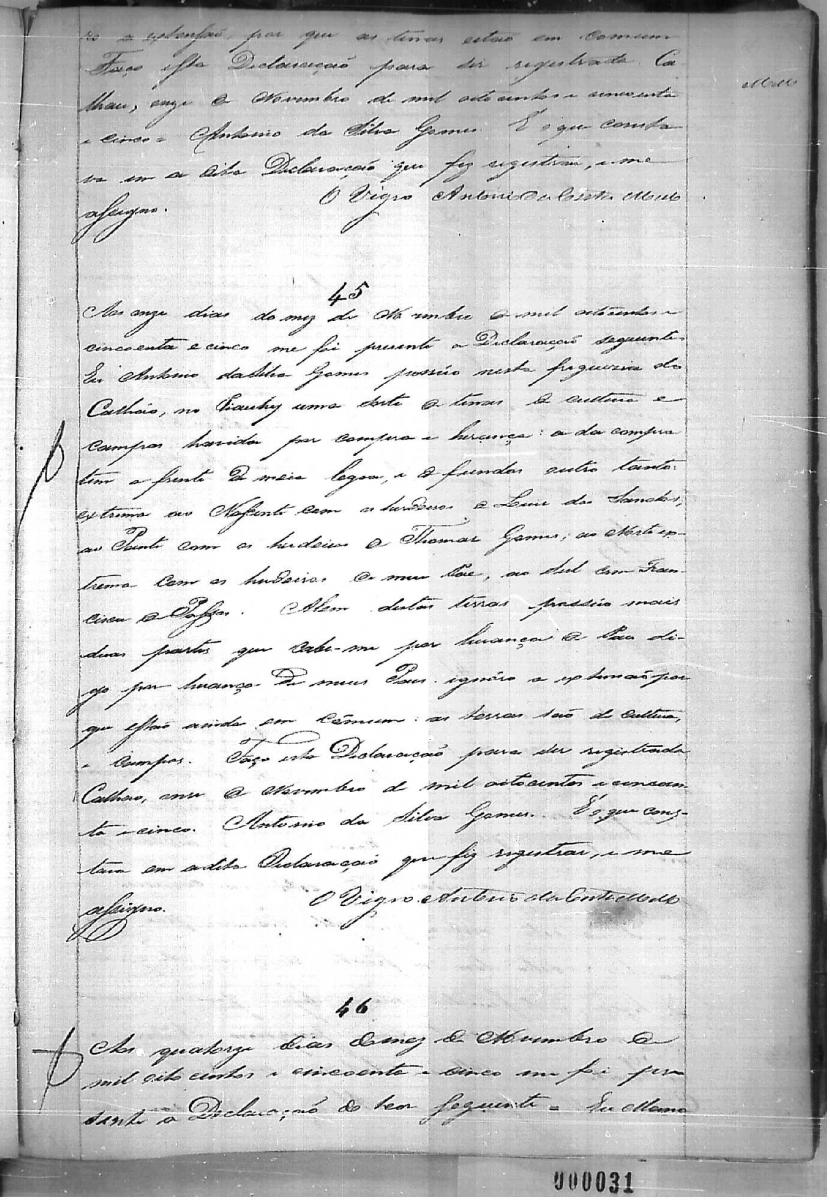 ro a extensão, por que as terras estão em comum
Faço esta Declaração para ser registrada. Ca
lhau, onze de Novembro de mil oitocentos e cincoenta
e cinco = Antonio da Silva Gomes. E o que consta
va em a dita Declaração que fiz registrar, e me
assigno. O Vigro Antonio da Costa Mello
Mello
45
Aos onze dias do mez de Novembro de mil oitocentos e
cincoenta e cinco me foi presente a Declaração seguinte
Eu Antonio da Silva Gomes possúo nesta freguezia do
Calháo, no Piauhy uma sorte de terras de cultura e
campos havida por compra e herança: a da compra
tem a frente de meia legoa, e de fundos outro tanto:
extrema ao Nassente com os herdeiros de Luiz dos Santos,
ao Poente com os herdeiros de Thomaz Gomes; ao Norte ex-
trema com os herdeiros de meu Pae, ao Sul com Fran
cisco de Passos. Alem destas terras possúo mais
duas partes que cabe-me por herança de Pau di-
go por herança de meus Paes. ignóro a extensão por
que estão ainda em comum: as terras são de cultura,
e campos. Faço esta Declaração para ser registrada
Calháo, onze de Novembro de mil oitocentos e cincoen
ta e cinco. Antonio da Silva Gomes. E o que cons-
tava em a dita Declaração que fiz registrar, e me
assigno. O Vigro Antonio da Costa Mello
46
Aos quatorze dias do mez de Novembro de
mil oito centos e cincoenta e cinco me foi pre
sente a Declaração do teor seguinte = Eu Mano
000031